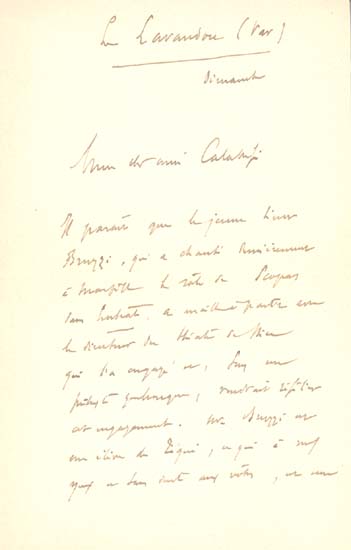 Le Lavandou (Var)
Dimanche
Mon cher ami Calabrési
Il paraît que le jeune ténor
Bruzzi, qui a chanté dernièrement
à Marseille le rôle de Scopas
dans , a maille à partir avec
le directeur du théâtre de Nice
qui l'a engagé et, sous un
prétexte quelconque, voudrait résilier
cet engagement. Mr Bruzzi est
un élève de , ce qui à mes
yeux et sans doute aux vôtres, est une